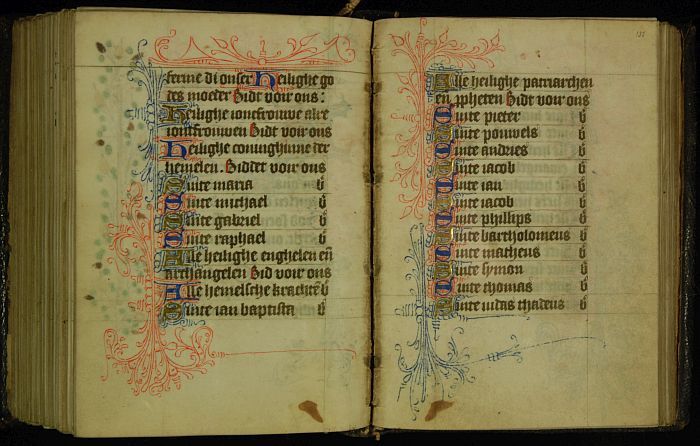 ferme di onser Heilighe go
des moeder Bidt voir ons:
Heilighe ioncfrouwe alre
ioncfrouwen Bidt voir ons
Heilighe coninghinne der
hemelen. Biddet voir ons
Sinte maria b
Sinte michael b
Sinte gabriel b
Sinte raphael b
Alle heilighe enghelen en̄
archangelen Bid voir ons
Alle hemelsche krachtē b
Sinte ian baptista b
Alle heilighe patriarchen
en̄ ꝓpheten Bidt voir ons
Sinte pieter b
Sinte pouwels b
Sinte andries b
Sinte iacob b
Sinte ian b
Sinte iacob b
Sinte phillips b
Sinte bartholomeus b
Sinte matheus b
Sinte symon b
Sinte thomas b
Sinte iudas thadeus b